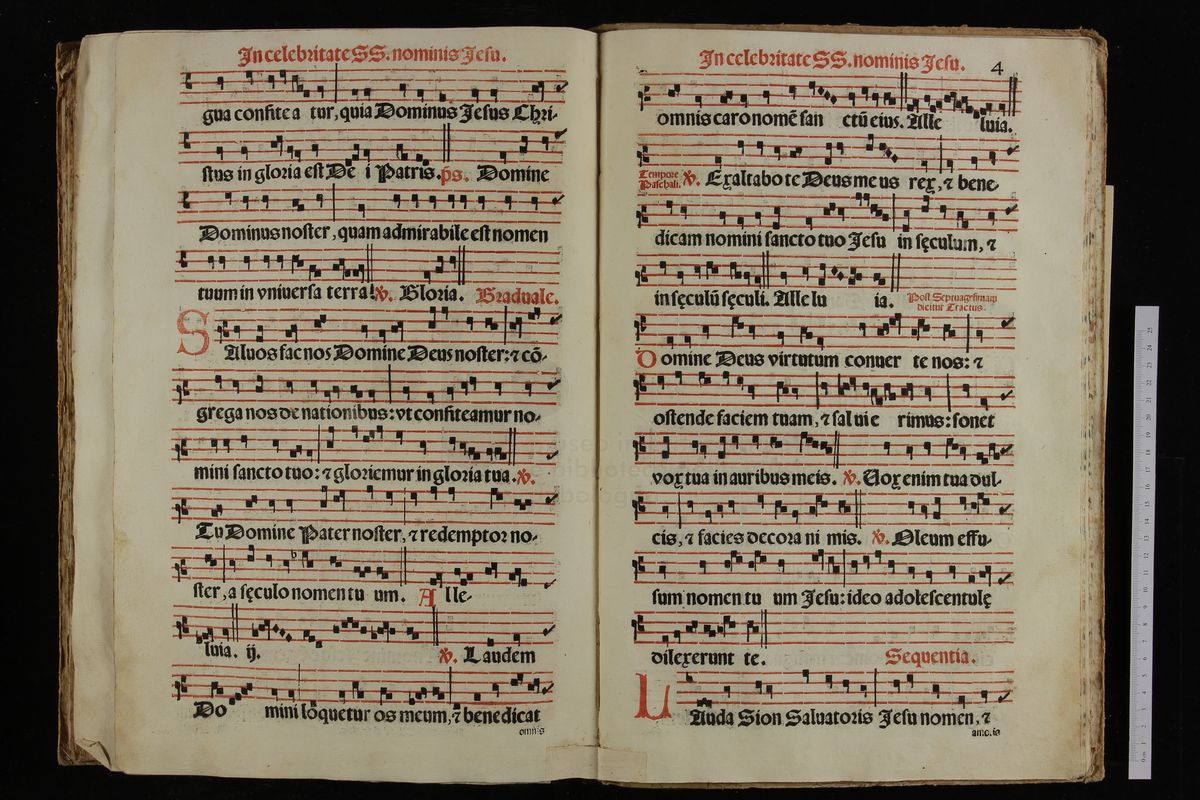 In celebritate SS. nominis Jesu.
gua confitea tur, quia Dominus Jesus Chri-
stus in gloria est De i Patris. ps. Domine
Dominus noster, quam admirabile est nomen
tuum in vniuersa terra! ℣. Gloria. Graduale.
SAluos fac nos Domine Deus noster: ⁊ cō-
grega nos de nationibus: vt confiteamur no-
mini sancto tuo: ⁊ gloriemur in gloria tua. ℣.
Tu Domine Pater noster, ⁊ redemptor no-
ster, a sęculo nomen tu um. A lle-
luia. ij. ℣. Laudem
Do mini lōquetur os meum, ⁊ benedicat
omnis
In celebritate SS. nominis Jesu. 4
omnis caro nomē san ctū eius. Alle luia.
Tempore Paschali. ℣. Exaltabo te Deus me us rex, ⁊ bene-
dicam nomini sancto tuo Jesu in sęculum, ⁊
in sęculū sęculi. Alle lu ia. Post Septuagesimam dicitur Tractus.
Domine Deus virtutum conuer te nos: ⁊
ostende faciem tuam, ⁊ salui e rimus: sonet
vox tua in auribus meis. ℣. Uox enim tua dul-
cis, ⁊ facies decora ni mis. ℣. Oleum effu-
sum nomen tu um Jesu: ideo adolescentulę
dilexerunt te. Sequentia.
LAuda Sion Saluatoris Jesu nomen, ⁊